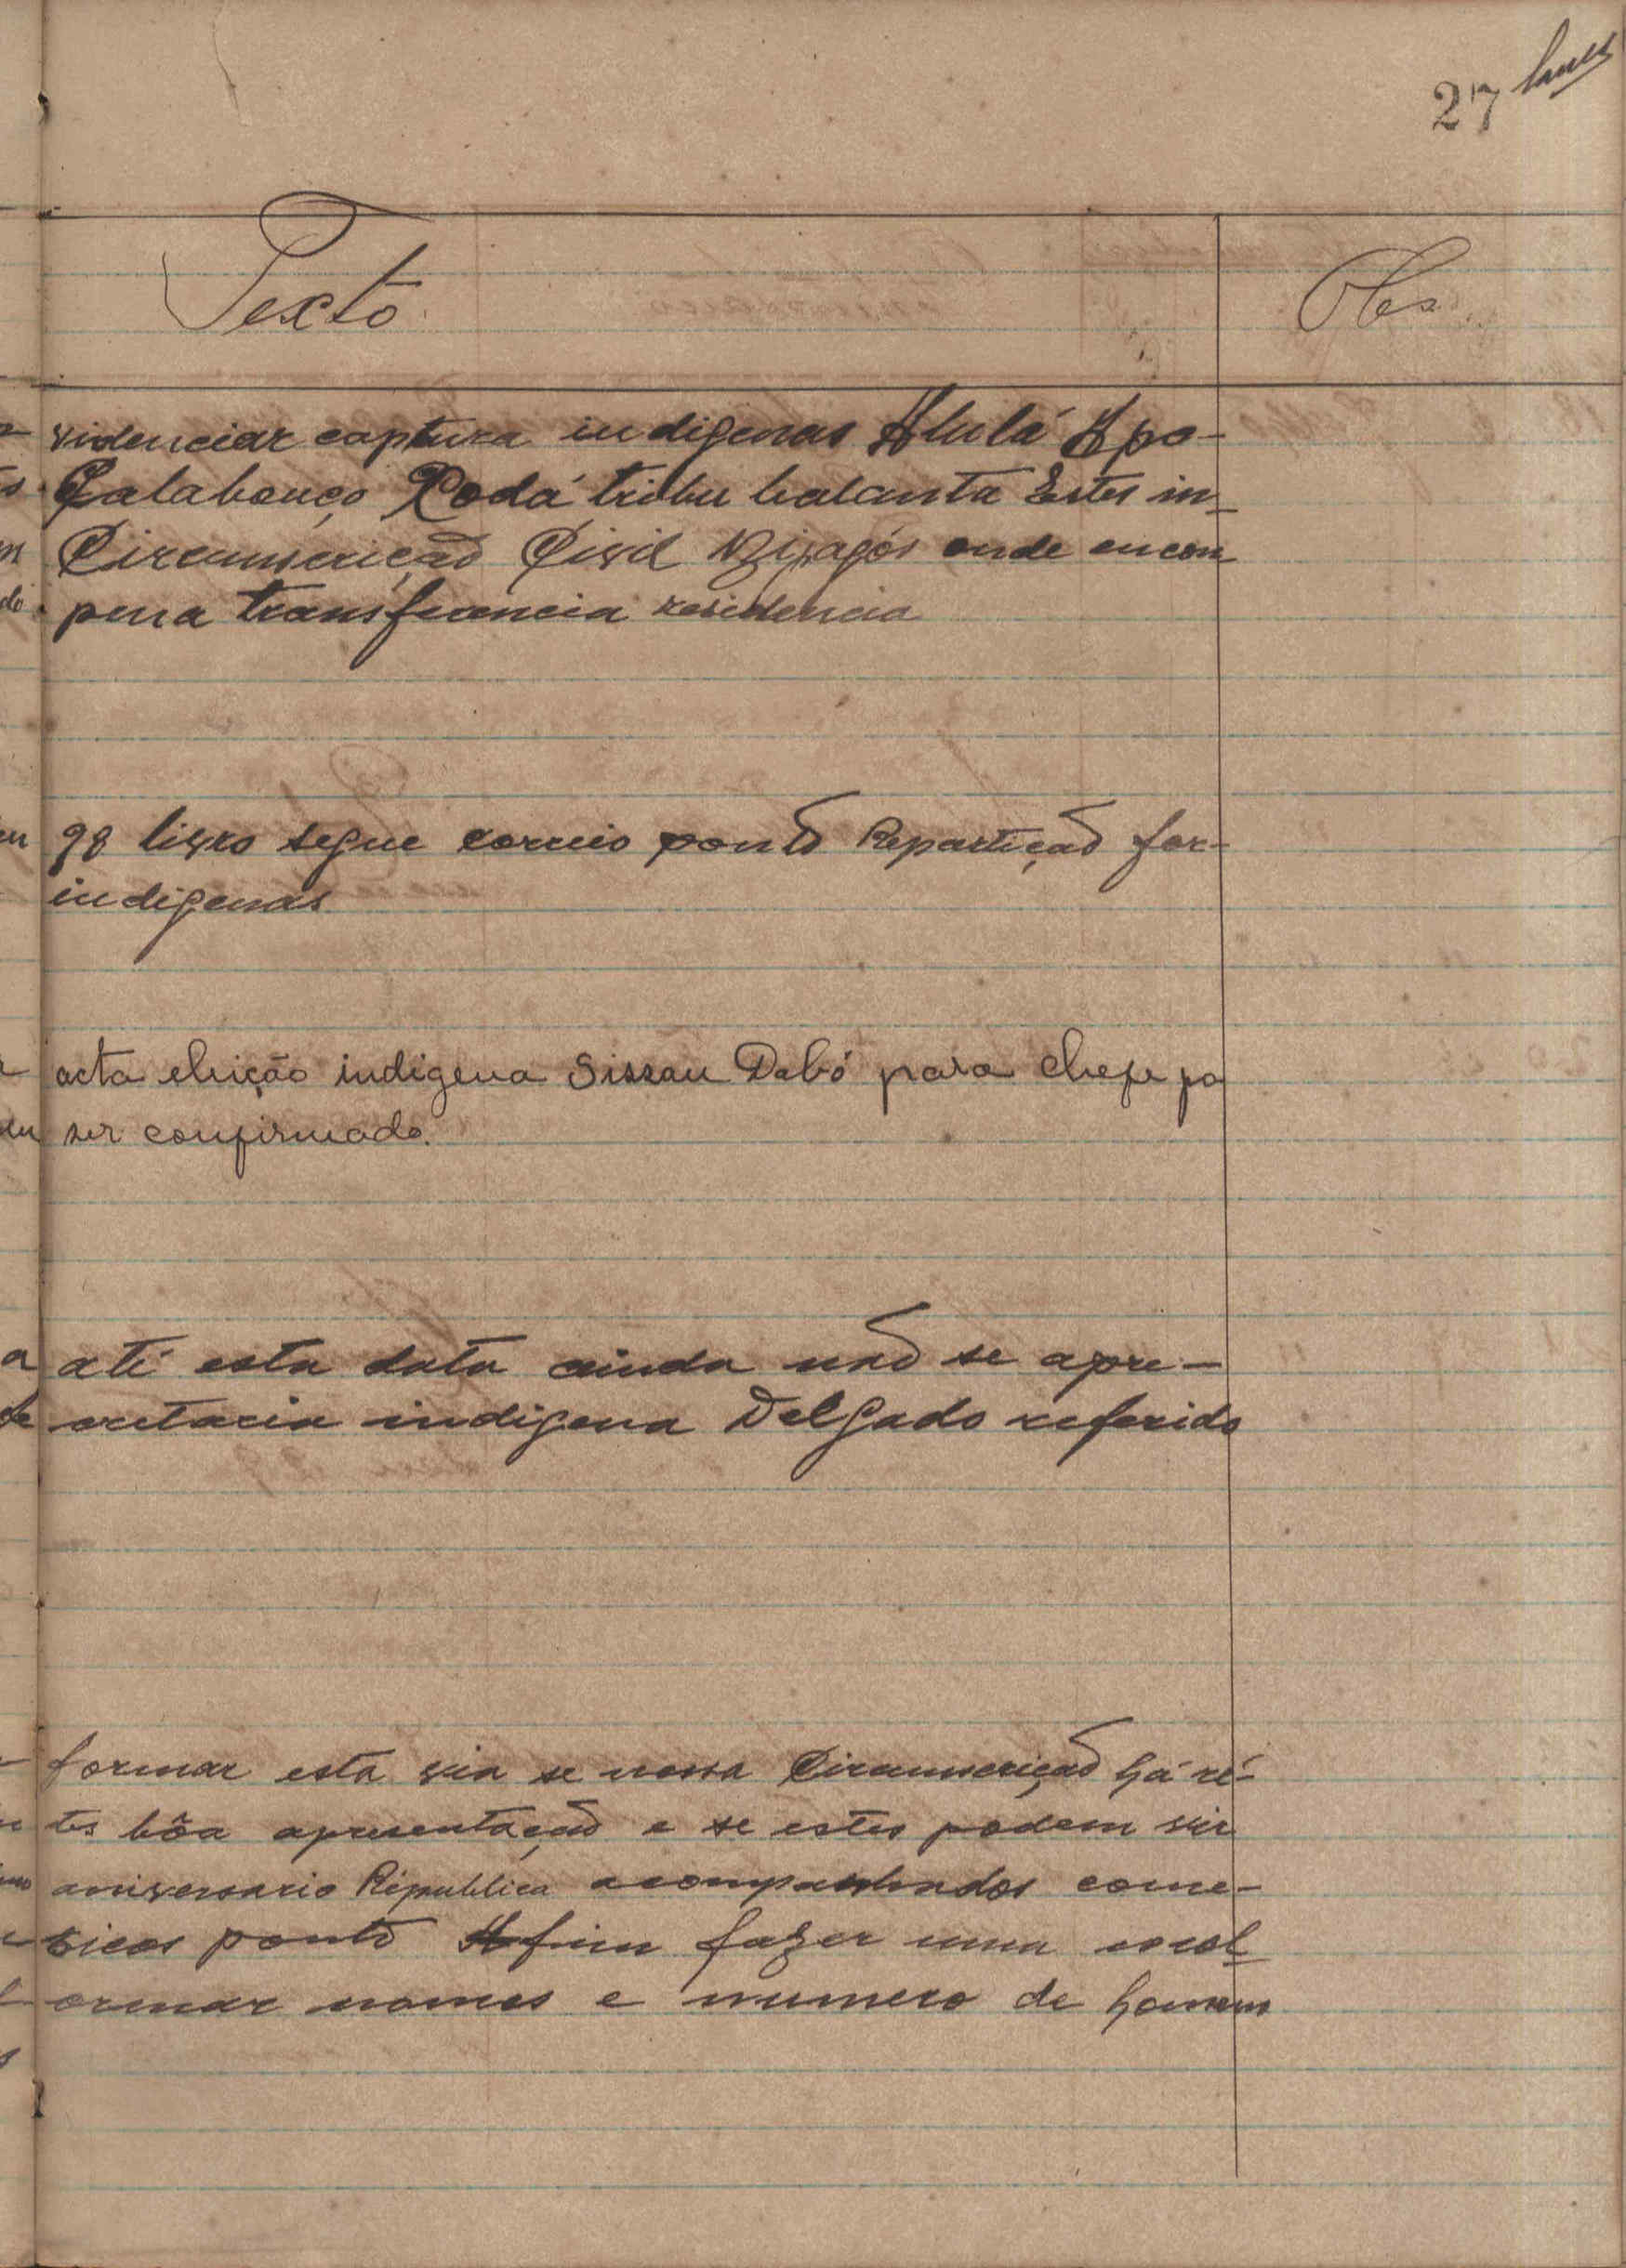 27
Texto
Obs.
videnciar captura indigenas Alulá Apo-
Calabouço Rodá tribu balanta Estes in-
Circunscrição Civil Bijagós onde encon
pena transferencia residencia
98 livro segue correio ponto Repartição for-
indigenas
acta eleição indigena Sissau Dabó para chefe po
ser confirmado.
até esta data ainda não se apre-
cretaria indigena Delgado referido
formar esta via se nossa Circunscrição há ré-
tes bôa apresentação e se estes podem vir
aniversario Républica acompanhados come-
sicos ponto Afim fazer uma escol
ormar nomes e numero de homens